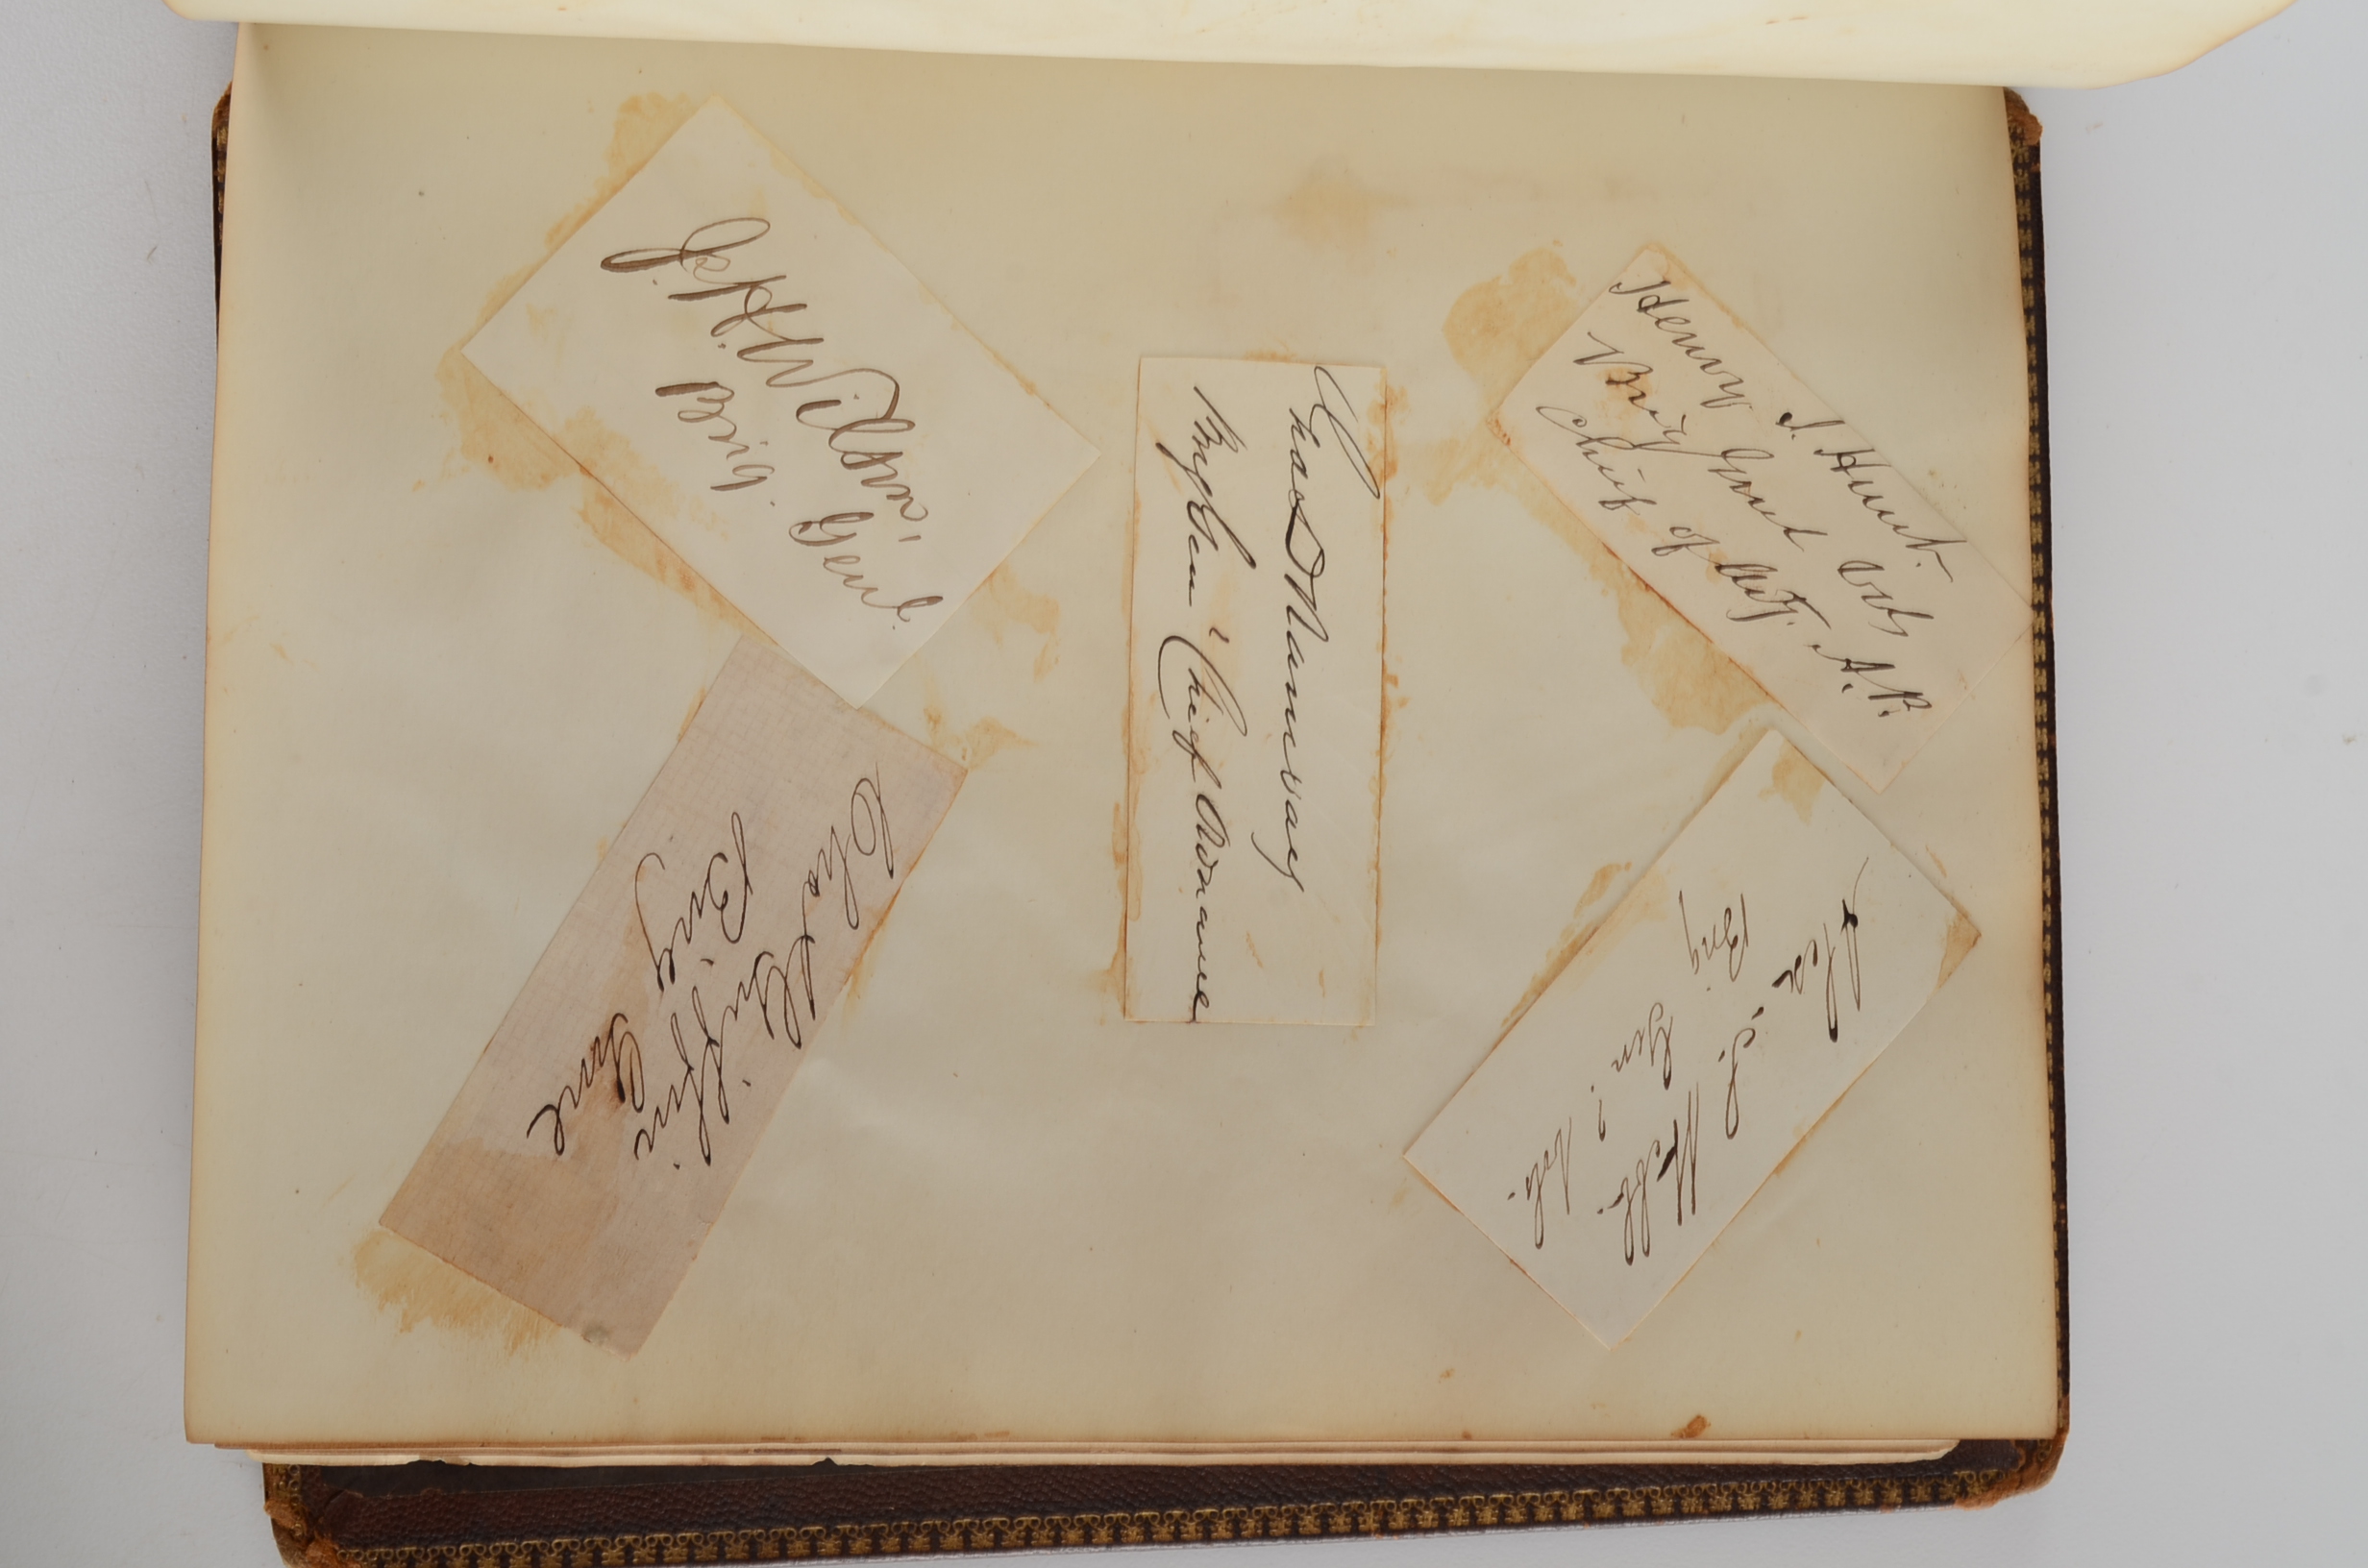 Henry J. Hunt
Brig Genl Vols
Chief of Art. A.P.
Alex. S. Webb.
Brig. Gen. Vols.
Chief Ordnance
J. H. Wilson,
Brig. Genl.
Chas Griffin
Brig Genl